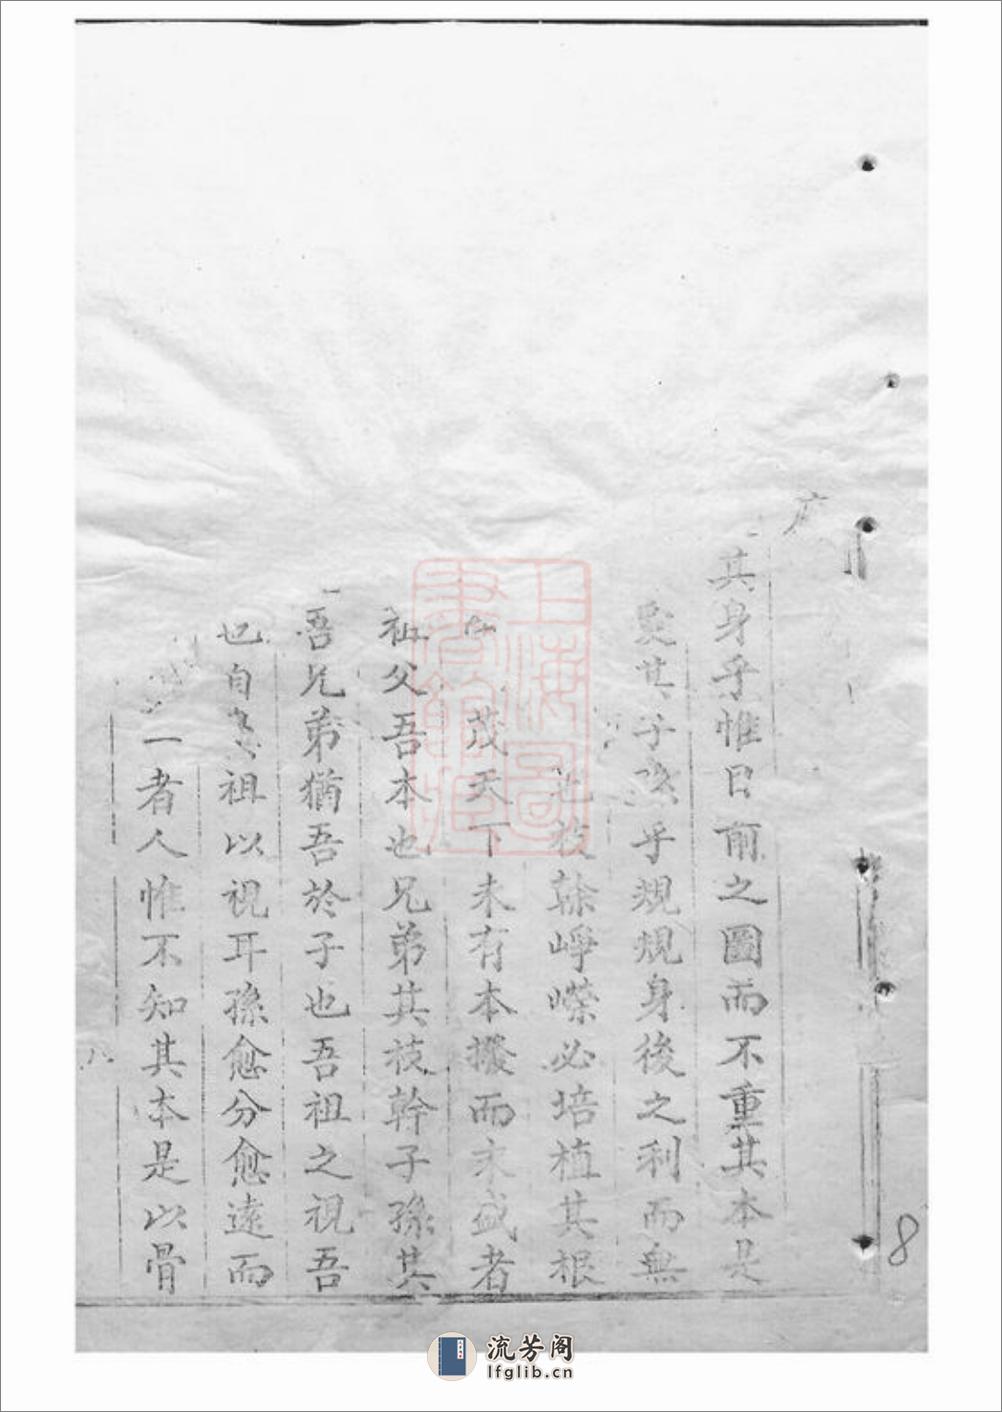 其身乎惟目前之圖而不重其本是
愛其子孫乎規規身後之利而無
也枝榦崢嶸必培植其根
茂天下未有本撥而末盛者
祖父吾本也兄弟其枝幹子孫其
吾兄弟猶吾於子也吾祖之視吾
也自祖以視耳孫愈分愈遠而
一者人惟不知其本是以骨
八
8
上海圖書館藏
流芳阁
lfglib.cn